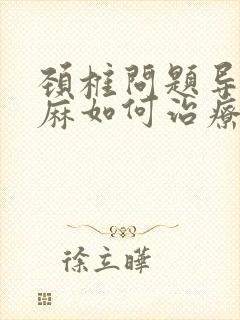 頚椎問題导
麻如何治療
徐立曄